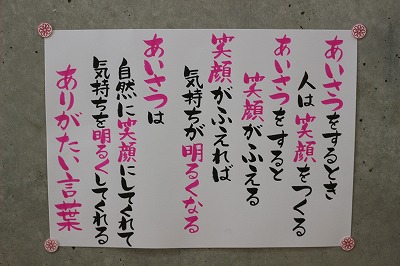 あいさつをするとき
人は笑顔をつくる
あいさつをすると
笑顔がふえる
笑顔がふえれば
気持ちが明るくなる
あいさつは
自然に笑顔にしてくれて
気持ちを明るくしてくれる
ありがたい言葉